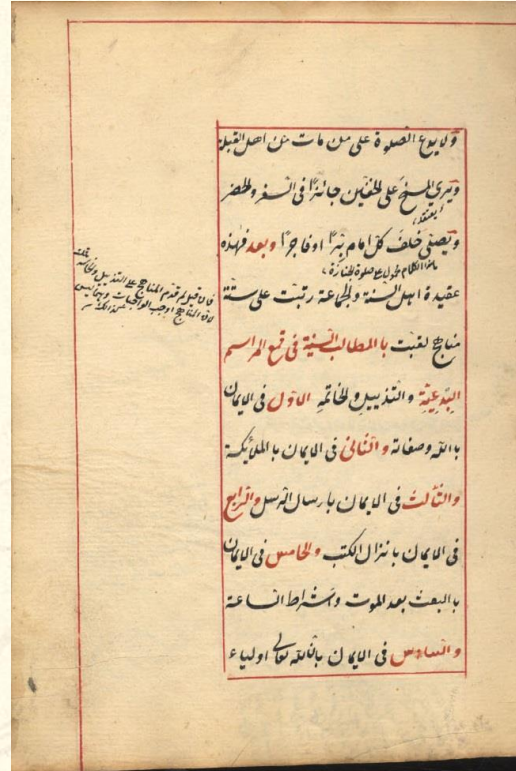 ولا يدع الصلوة على من مات من اهل القبلة
ويرى المسح على الخفين جائزًا في السفر والحضر
ويصلى خلف كل امام برًّا او فاجرًا وبعد فهذه
عقيدة اهل السنة والجماعة رتبت على ستة
مناهج لقبت بالمطالب السنية في قمع المراسم
البدعية والتذييل والخاتمة الاول في الايمان
بالله وصفاته والثاني في الايمان بالملائكة
والثالث في الايمان بارسال الرسل والرابع
في الايمان بانزال الكتب والخامس في الايمان
بالبعث بعد الموت واشتراط الساعة
والسادس في الايمان بان لله تعالى اولياء
اى يعتقد
هذا الكلام محمول على صلوة الجنازة
فان قيل لم قدم المناهج على التذييل والخاتمة قلت
لان المناهج اوجب الواجبات